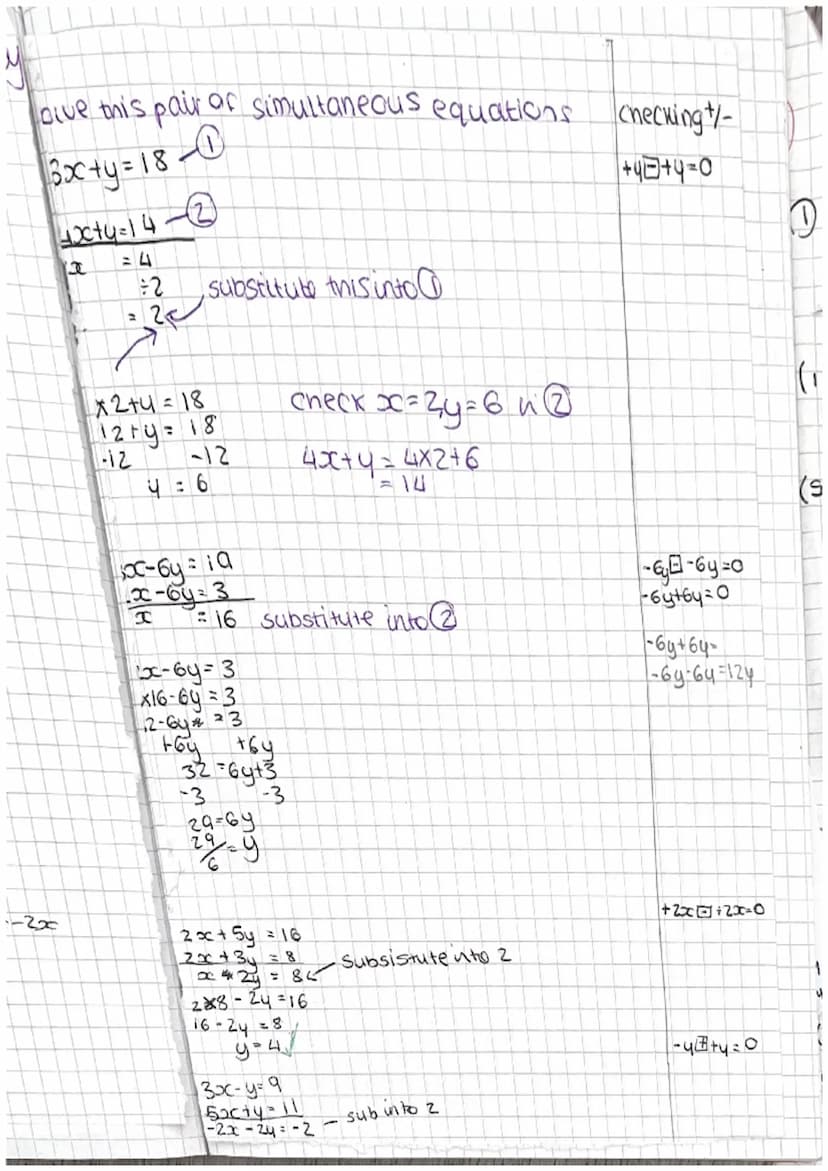 this pair of simultaneous equations
checking +/-
3x+y=18 - ①
+y⊟+y=0
x+y=14 - ②
①
x = 4
÷2
substitute this into ①
= 2
×2+y = 18
check x=2, y=6 in ②
12+y = 18
-12 -12
4x+y = 4×2+6
y = 6
= 14
x-6y=19
-6y⊟-6y=0
x-6y=3
-6y+6y=0
x = 16 substitute into ②
-6y+6y=
x-6y=3
-6y-6y=12y
×16-6y=3
2-6y = 3
+6y +6y
32=6y+3
-3 -3
29=6y
29/6=y
+2x⊟+2x=0
-2x
2x+5y = 16
2x+3y = 8 subsistute into 2
x 2y = 8
2×8-2y=16
16-2y=8
y=4 ✓
-y⊞+y=0
3x-y=9
5x+y=11
-2x-2y=-2 - sub into 2